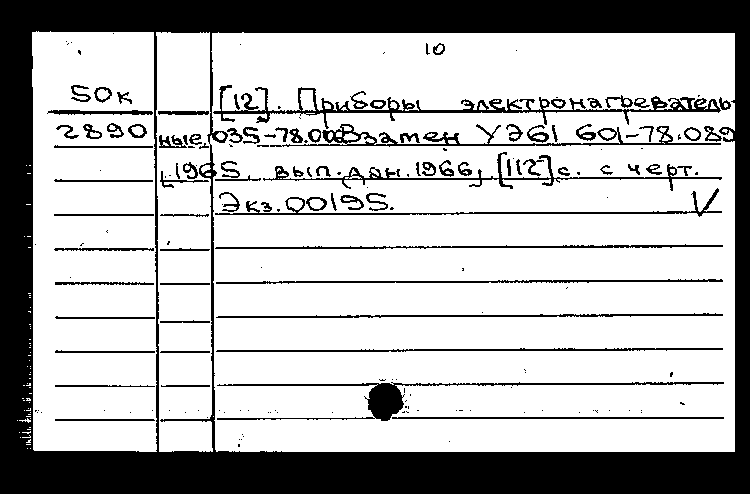 10
50к [12]. Приборы электронагреватель-
2890 ные. 035-78.00 Взамен УЭ61 601-78.089
[1965. вып.дан.1966, [112]с. с черт.
Экз.00195. V